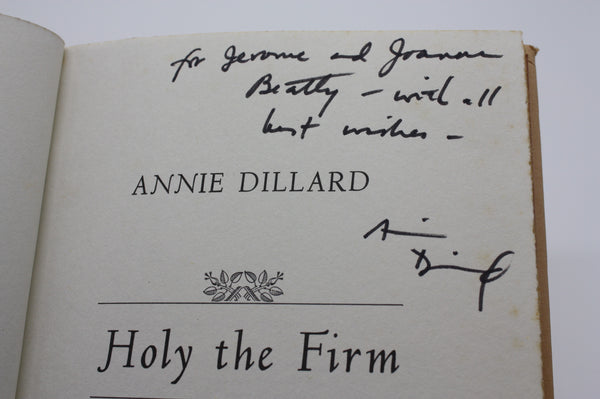 for Jerome and Joanna
Beatty – with all
best wishes –
ANNIE DILLARD
Annie
Dillard
Holy the Firm